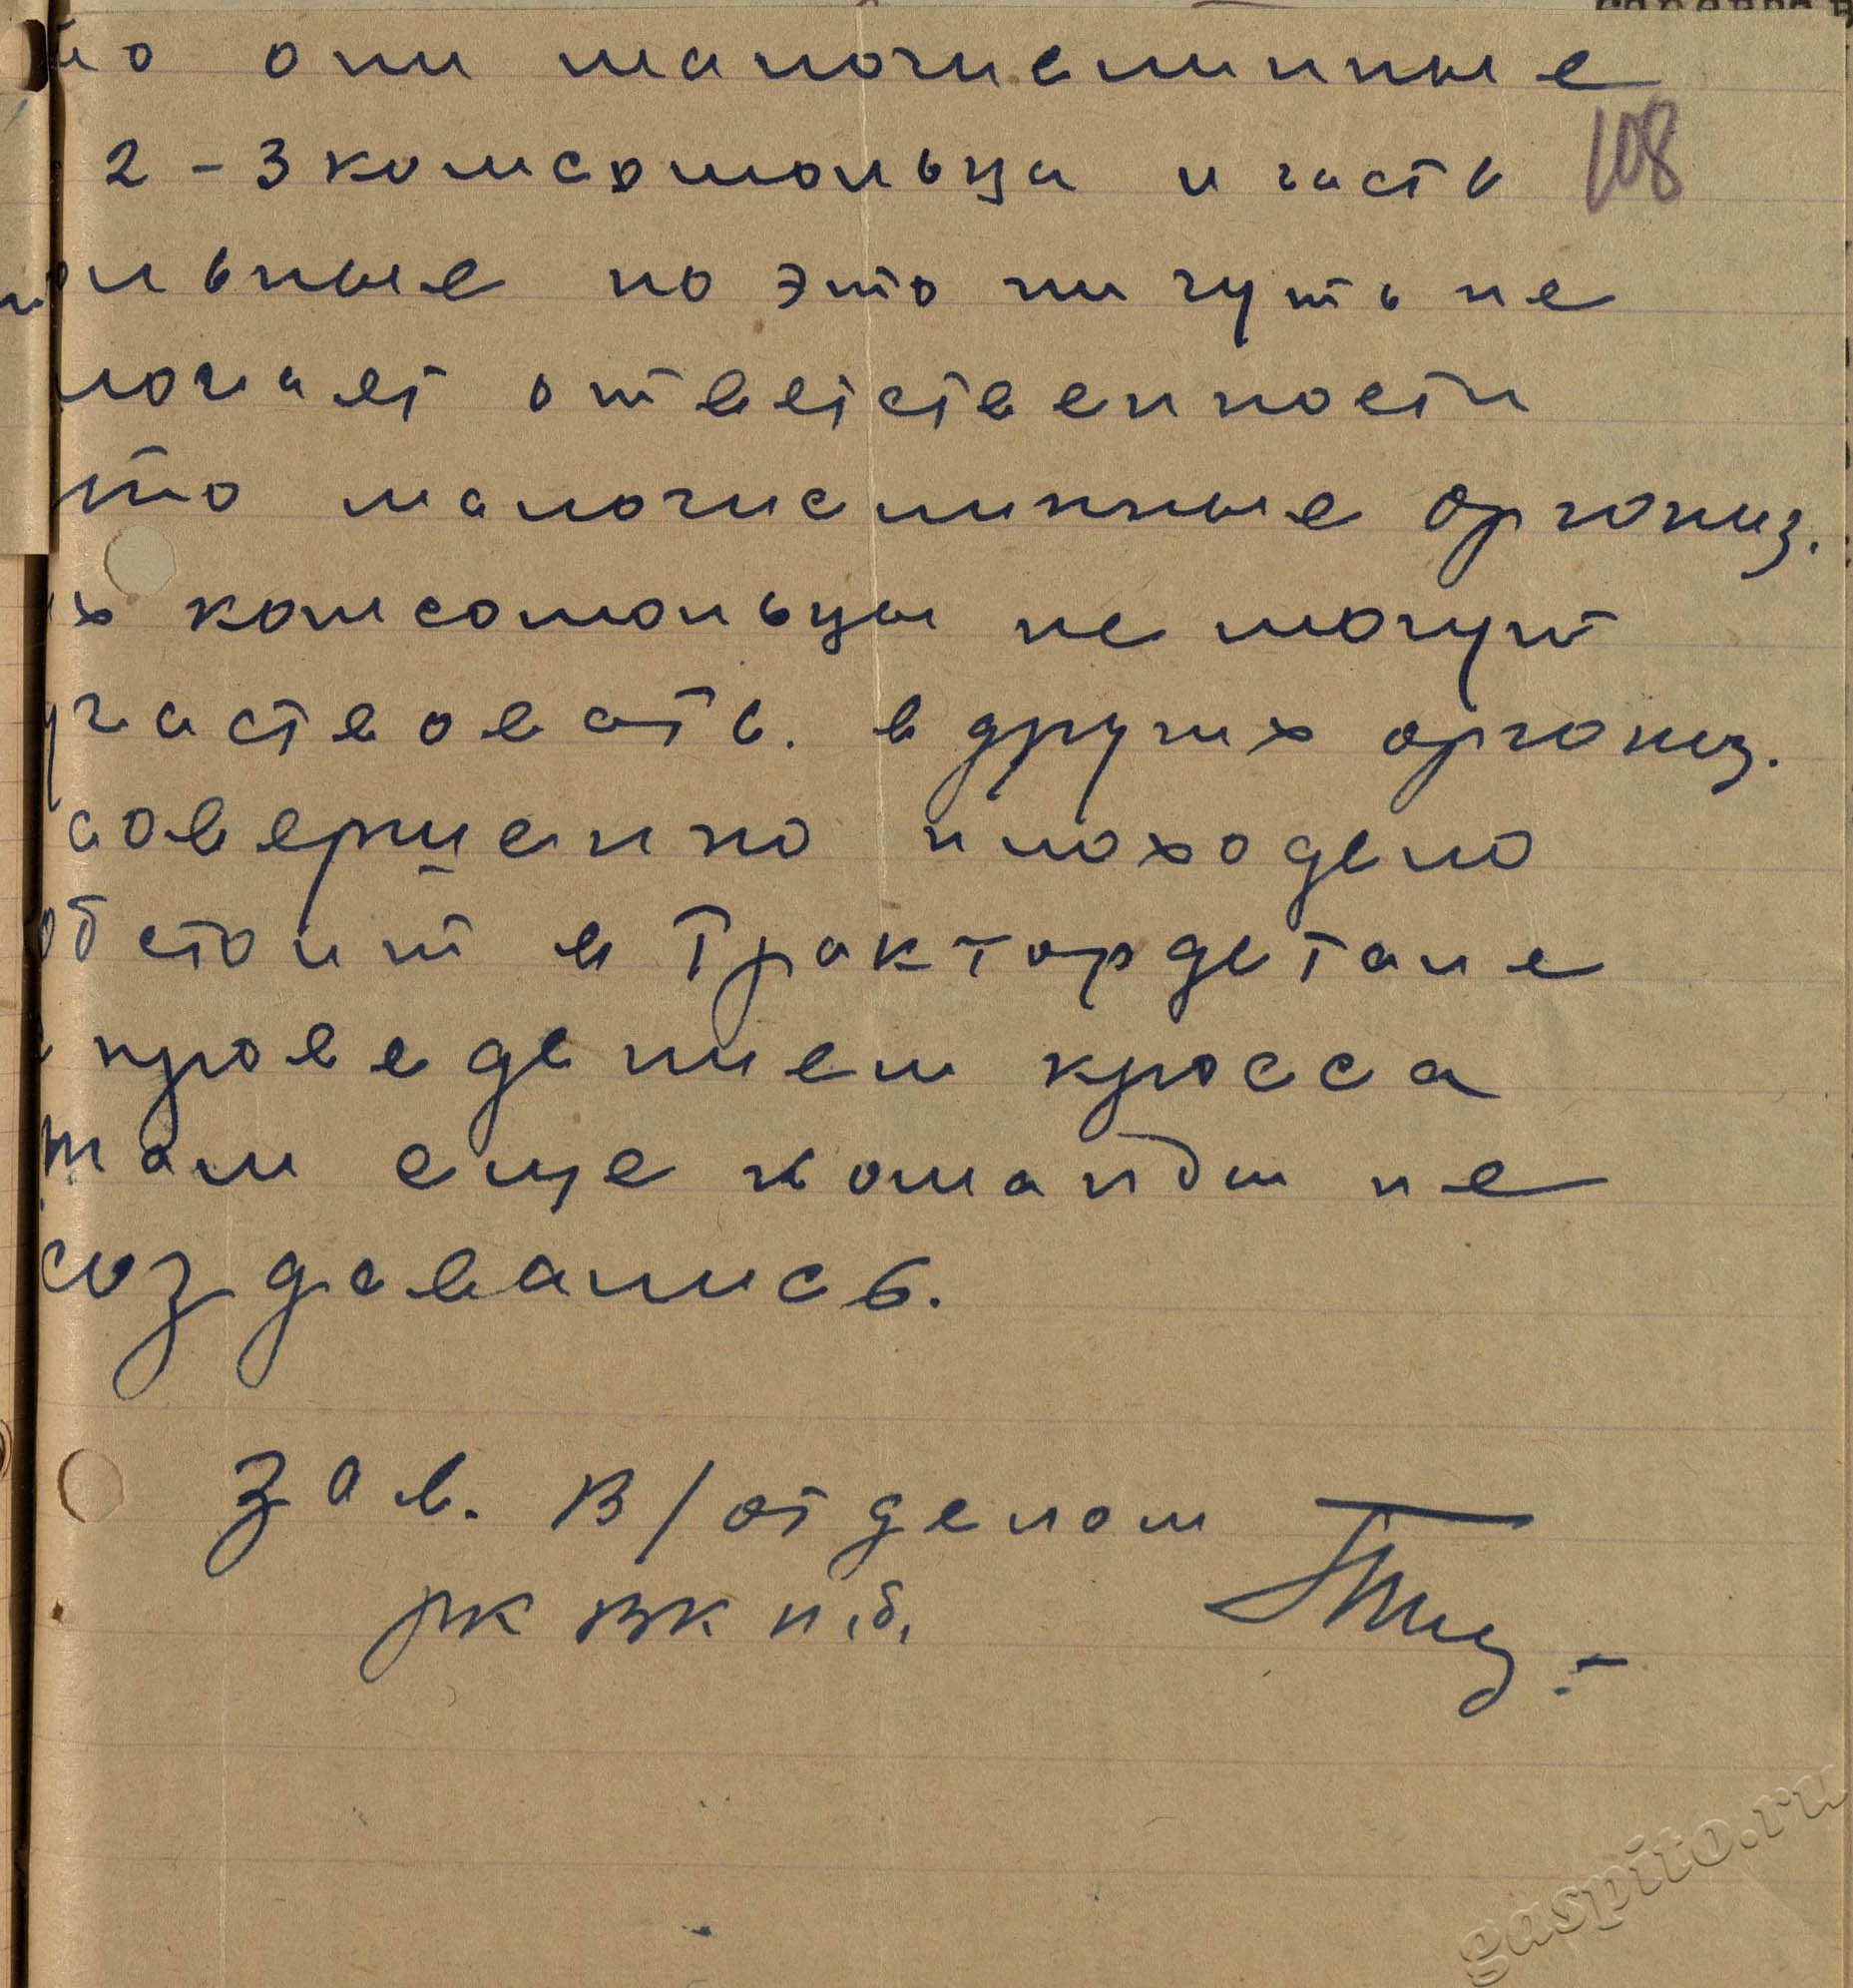 то они малочислинные
108
2-3 комсомольца и часть
ольные но это ни чуть не
ответственности
что малочислинные организ.
их комсомольцы не могут
участвовать. в других организ.
совершенно плохо дело
обстоит в Трактордетале
с проведением кросса
там еще команды не
создавались.
Зав. В/отделом
РК ВК п.б.
gaspito.ru